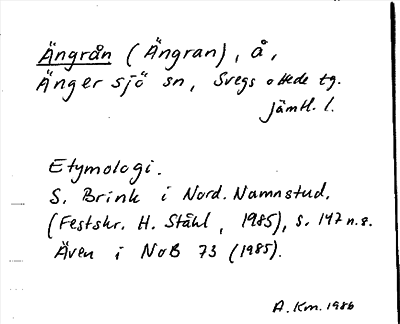 Ängrån (Ängran), å,
Änger sjö sn, Svegs ottede tg.
jämtl. l.
Etymologi.
S. Brink i Nord. Namnstud.
(Festskr. H. Ståhl, 1985), s. 147 n. 9.
Även i NoB 73 (1985).
A. Km. 1986